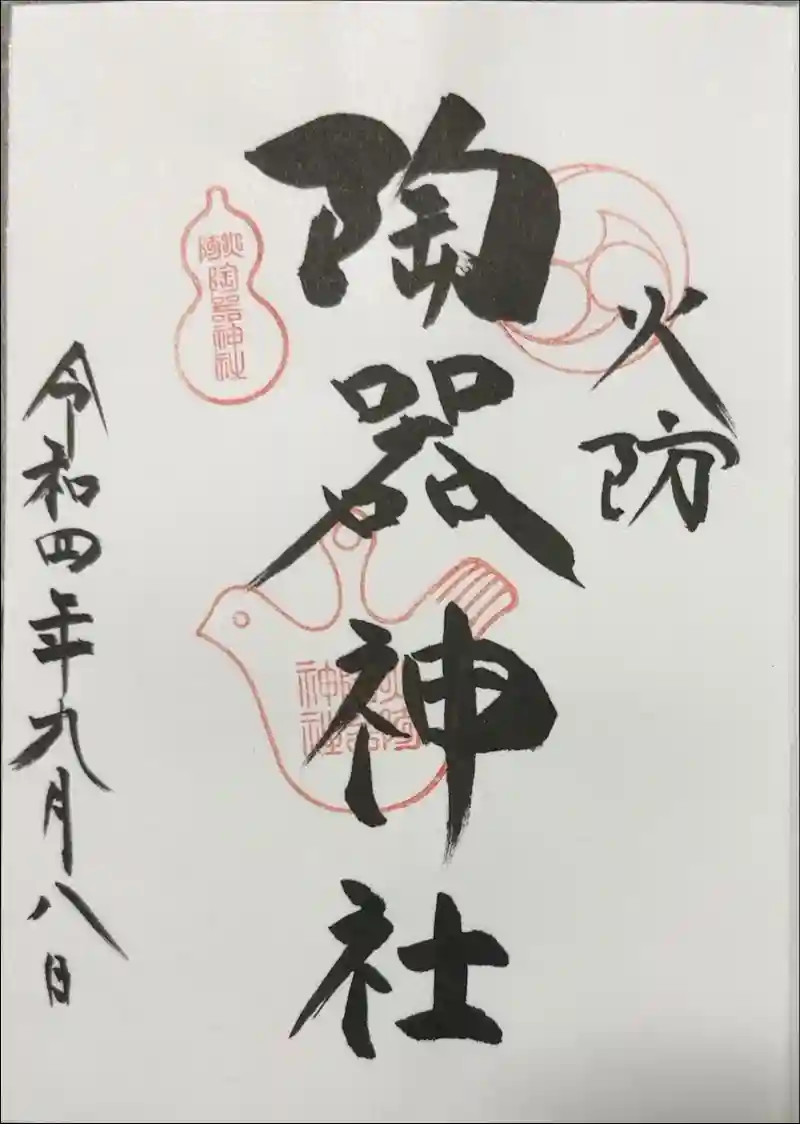 火防
陶器神社
火防
陶器神社
火防陶器
神社
令和四年九月八日